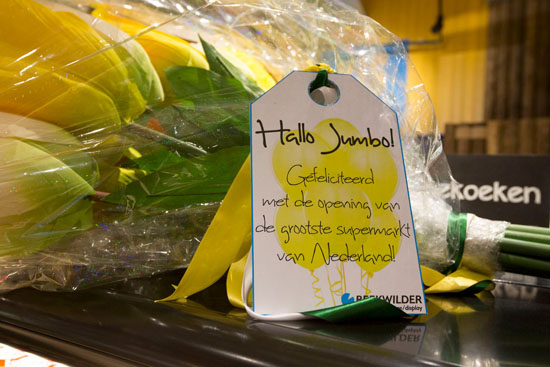 Hallo Jumbo!
Gefeliciteerd
met de opening van
de grootste supermarkt
van Nederland!
BEEKWILDER
ekoeken